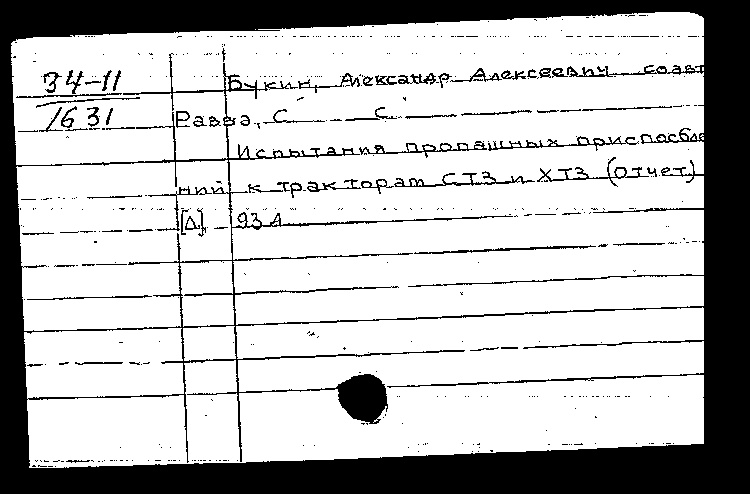 34-11
1631
Букин, Александр Алексеевич соавт
Равва, С С.
Испытания пропашных приспособле
ний к тракторам СТЗ и ХТЗ (отчет)
[Л] 93 л